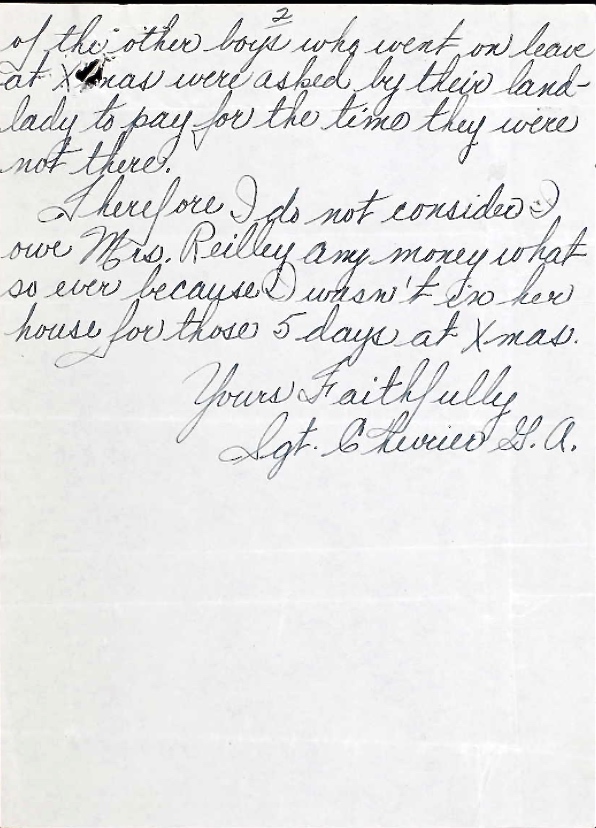 2
of the other boys who went on leave
at Xmas were asked by their land-
lady to pay for the time they were
not there.
Therefore I do not consider I
owe Mrs. Reilley any money what
so ever because I wasn't in her
house for those 5 days at Xmas.
Yours Faithfully
Sgt. Chevrier G. A.